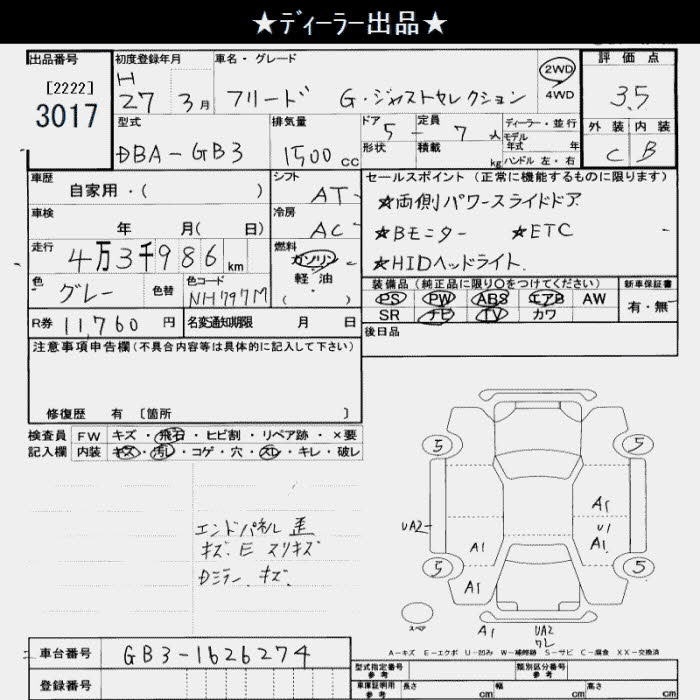 ★ディーラー出品★
出品番号 初度登録年月 車名・グレード 評価点
[2222] H 2WD
3017 27 3月 フリード G・ジャストセレクション 4WD 3.5
型式 排気量 ドア 定員 ディーラー・並行 外装 内装
DBA-GB3 1500cc 5 - 7人 モデル年式 年 C B
形状 積載 kg ハンドル 左・右
車歴 シフト セールスポイント(正常に機能するものに限ります)
自家用・( ) AT
★両側パワースライドドア
車検 冷房
年 月( 日) AC ★Bモニター ★ETC
走行 燃料
4万3千986km ガソリン ★HIDヘッドライト
色 色替 色コード 軽油
グレー NH797M ( ) 装備品(純正品に限り○をつけてください) 新車保証書
PS PW ABS エアB AW 有・無
R券 11,760円 名変通知期限 月 日 SR ナビ TV カワ
注意事項申告欄(不具合内容等は具体的に記入して下さい) 後日品
修復歴 有 [箇所 ]
検査員 FW キズ・飛石・ヒビ割・リペア跡・×要
記入欄 内装 キズ・汚レ・コゲ・穴・スレ・キレ・破レ
5 5
A1
UA2 U1
A1 A1
5 5
A1
エンドパネル 歪
キズ. E スリキズ
Dミラー. キズ.
スペア A1 UA2
ワレ
A-キズ E-エクボ U-凹み W-補修跡 S-サビ C-腐食 XX-交換済
車台番号 GB3-1626274 型式指定番号 参考 類別区分番号 参考
登録番号 車庫証明用 参考 長さ cm 幅 cm 高さ cm